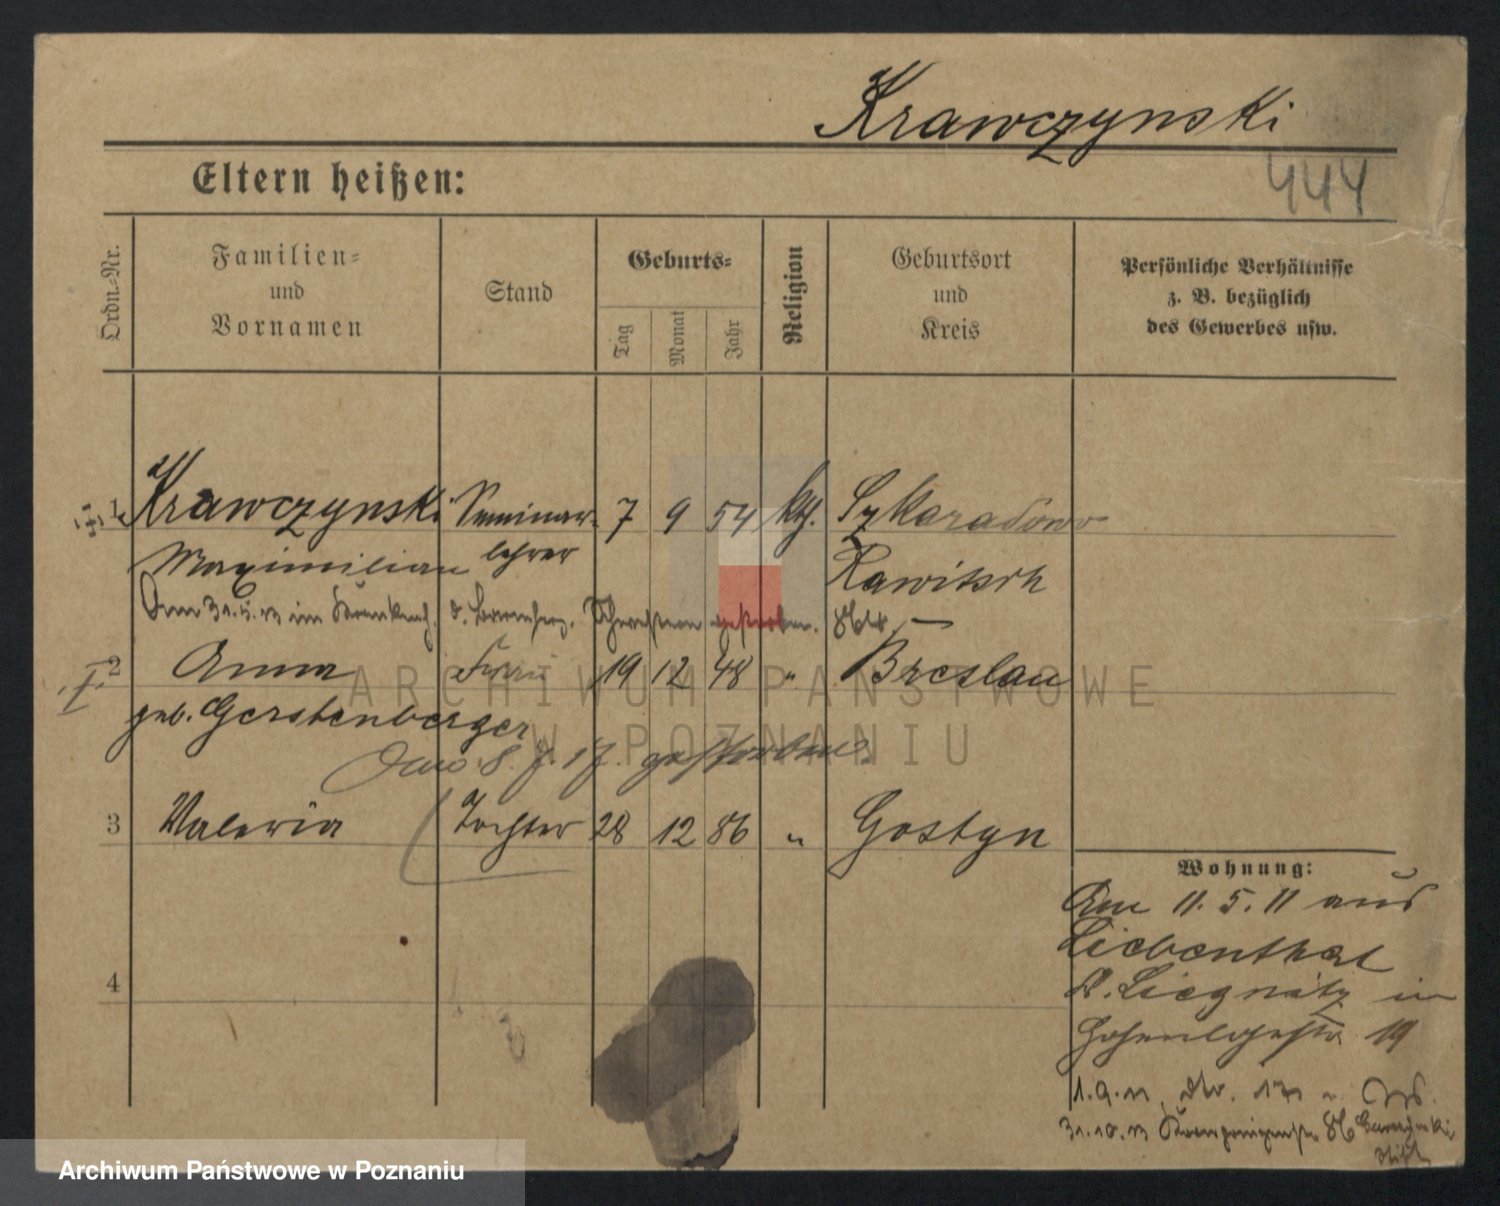 Krawczynski
444
Eltern heißen:
Ordn.-Nr.
Familien-
und
Vornamen
Stand
Geburts-
Tag
Monat
Jahr
Religion
Geburtsort
und
Kreis
Persönliche Verhältnisse
z. B. bezüglich
des Gewerbes usw.
1 Krawczynski Seminar- 7 9 54 kth. Szkaradowo
Maximilian lehrer Rawitsch
Am 31.5.13 im d. gestorben.
2 Anna Frau 19 12 48 " Breslau
geb. Gerstenberger
Am 8. 7. 17. gestorben.
3 Valeria Tochter 28 12 86 " Gostyn
4
Wohnung:
Am 11. 5. 11 aus
Liebenthal
Liegnitz in
Hohenlohestr. 19
1.9.11
31.10.13
ARCHIWUM PAŃSTWOWE
W POZNANIU
Archiwum Państwowe w Poznaniu